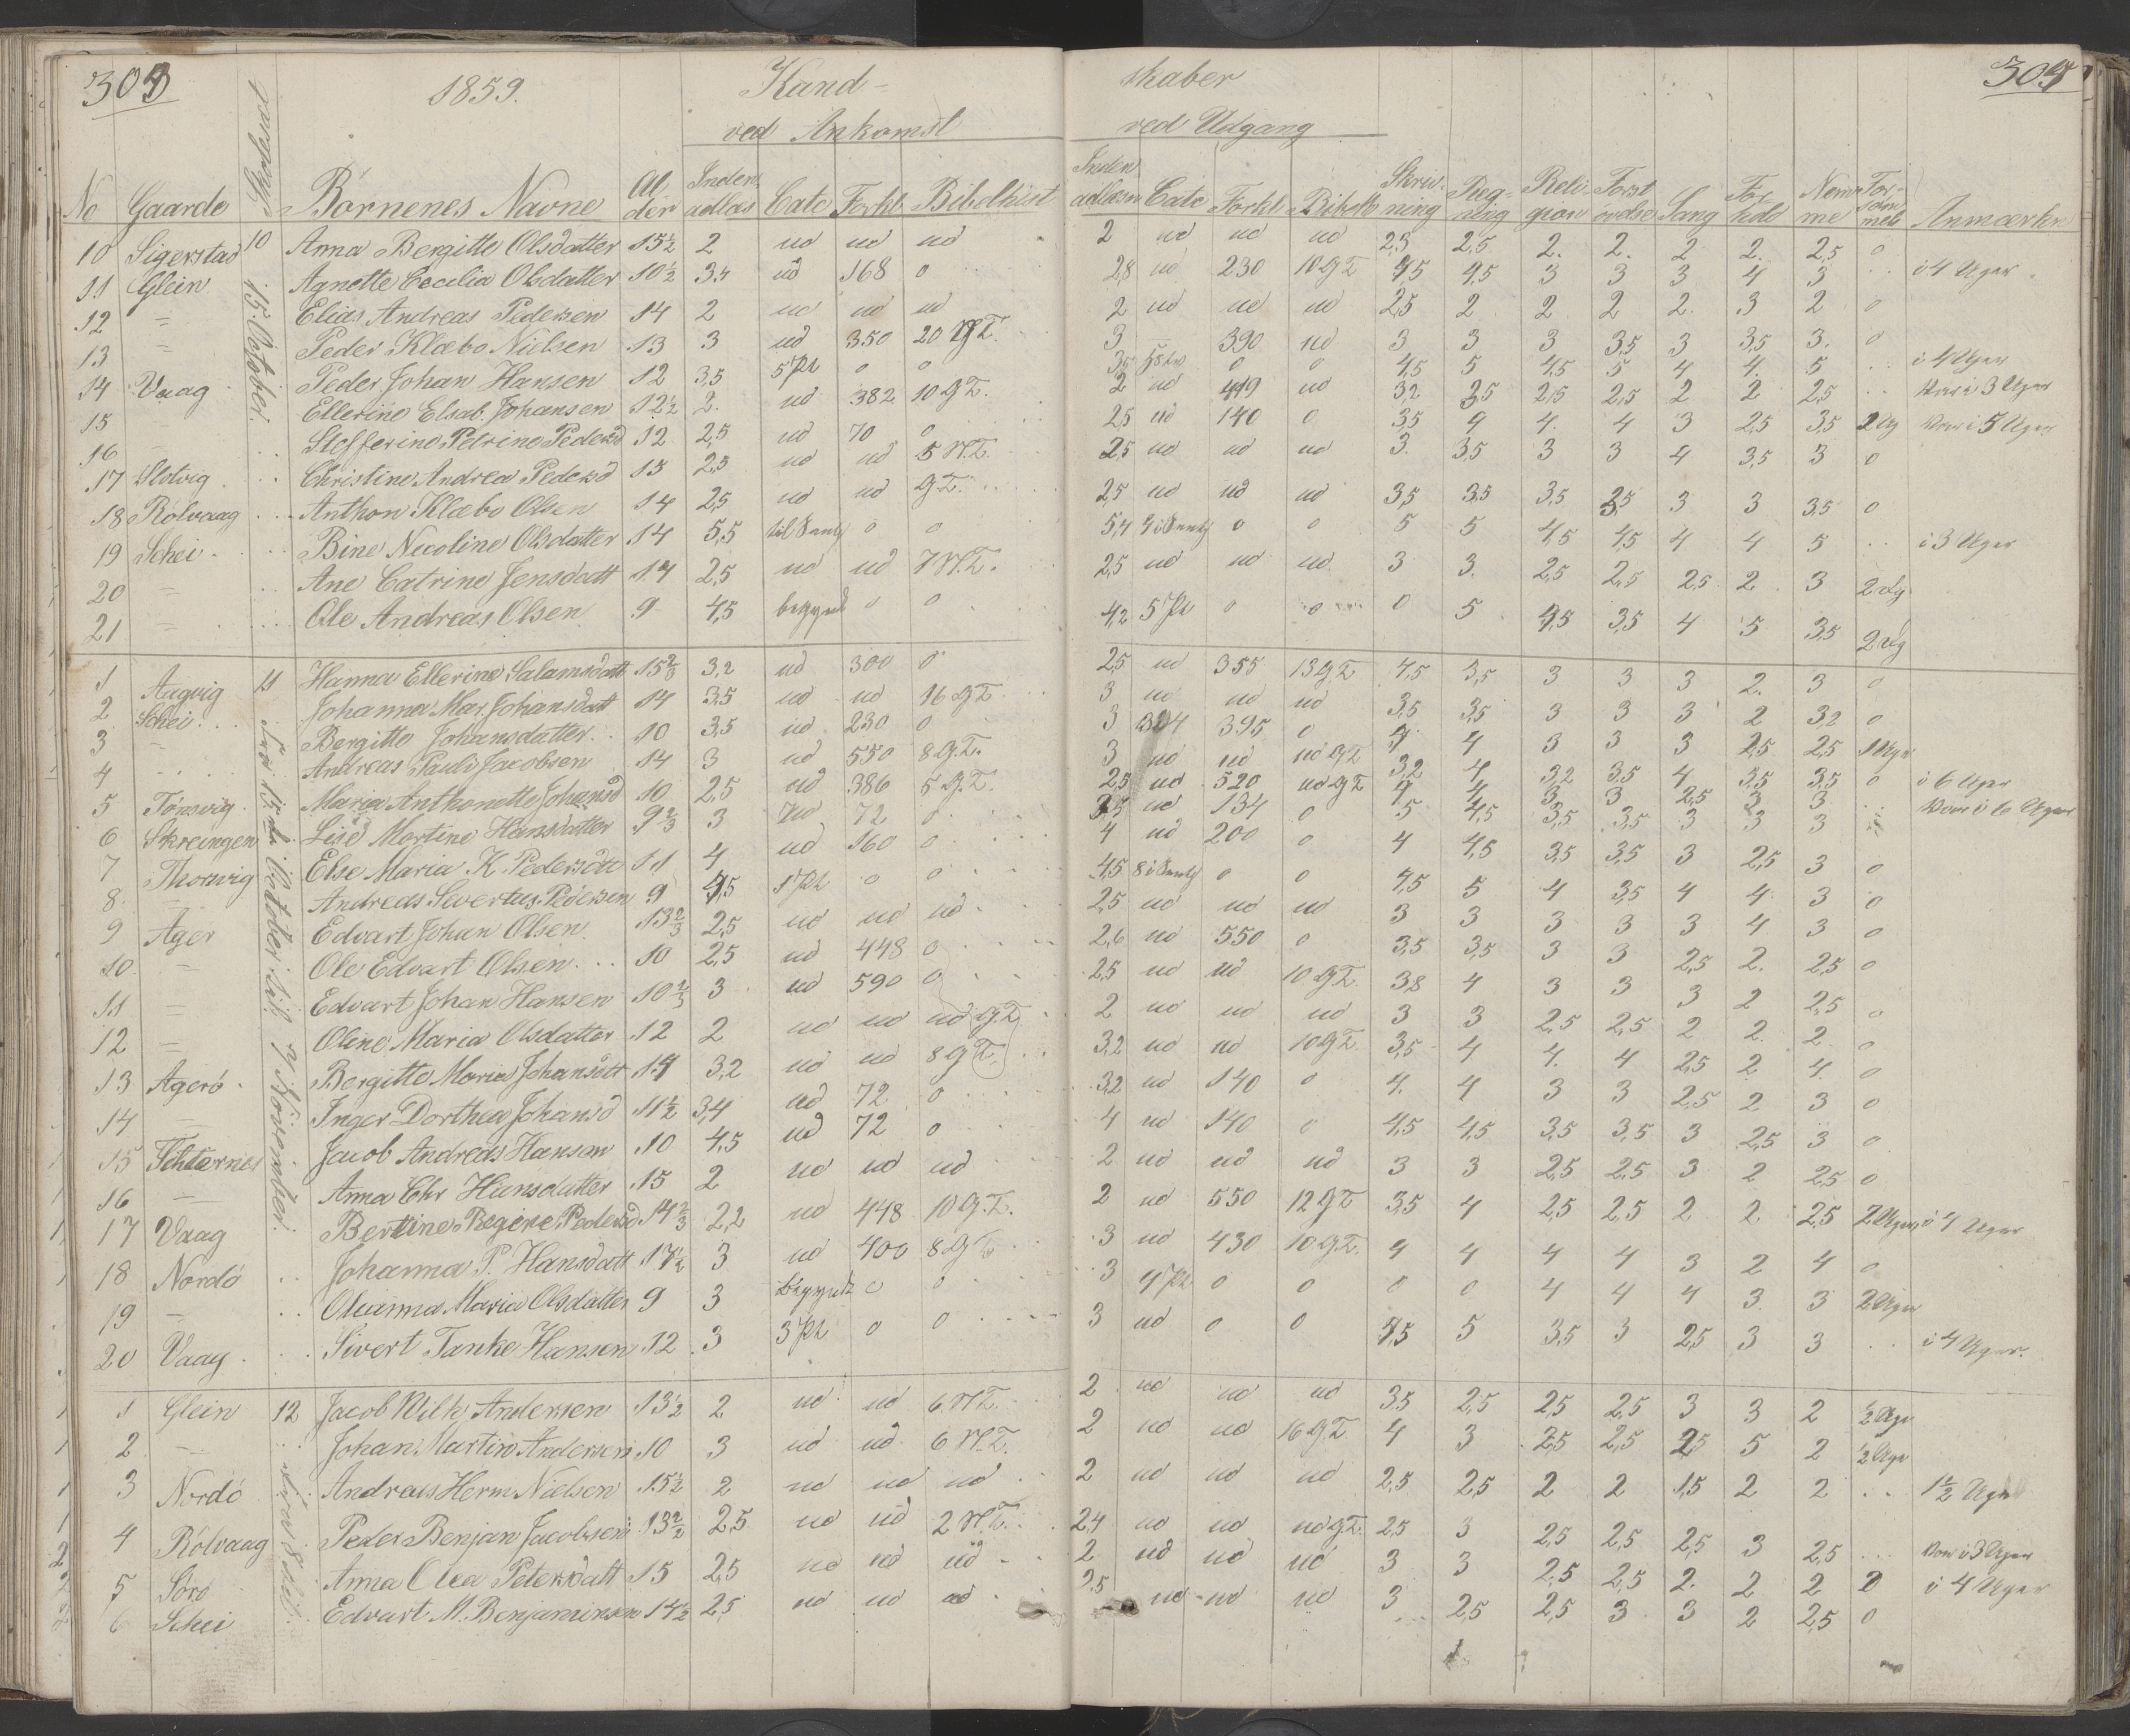 1859.
Kand- skaber
ved Ankomst ved Udgang
No Gaarde Börnenes Navne Al der Inden adlæs Cate Forkl. Bibelhist Inden adlæsn Cate Forkl. Bibelh Skriv- ning Reg- ning Reli- gion Forst Sang For- hold Anmærkn
10 Sigerstad 10 Anna Bergitte Olsdatter 15½ 2 ud ud ud 2 ud ud ud 2,5 2,5 2. 2. 2 2. 2,5 0
11 Glein Agnette Cecilia Olsdatter 10½ 3,4 ud 168 0 2,8 ud 230 10 G.T. 4,5 4,5 3 3 3 4 3 .. i 4 Uger
12 = Elias Andreas Pedersen 14 2 ud ud ud 2 ud ud ud 2,5 2 2 2 2 3 2 0
13 = Peder Klæbo Nielsen 13 3 ud 350 20 G.T. 3 390 ud 3 3 3 3,5 3 3,5 3. 0
14 Vaag Peder Johan Hansen 12 3,5 5 Pt 0 0 3,5 0 0 4,5 5 4,5 5 4 4. 5 .. i 4 Uger
15 Ellerine Elsab. Johansen 12½ 2. ud 382 10 G.T. 2 ud 449 ud 3,2 3,5 2,5 2,5 2 2 2,5 .. Var i 3 Uger
16 Stefferine Petrine Pedersd 12 2,5 ud 70 0 2,5 ud 140 0 3,5 4 4. 4 3 2,5 3,5 2 Ug Var i 5 Uger
17 Slotvig Christine Andrea Pedersd 13 2,5 ud ud 5 N.T. 2,5 ud ud ud 3. 3,5 3 3 4 3,5 3 0
18 Rölvaag Anthon Klæbo Olsen 14 2,5 ud ud G.T. 2,5 ud ud ud 3,5 3,5 3,5 3,5 3 3 3,5 0
19 Schei Bine Nicoline Olsdatter 14 5,5 0 0 5,4 0 0 5 5 4,5 4,5 4 4 5 .. i 3 Uger
20 = Ane Catrine Jensdatt 14 2,5 ud ud 7 N.T. 2,5 ud ud ud 3 3. 2,5 2,5 2,5 2. 3 2 Ug
21 = Ole Andreas Olsen 9 4,5 begyndt 0 0 4,2 5 Pt 0 0 0 5 4,5 3,5 4 5 3,5 2 Ug
1 Aagvig 11 Hanna Ellerine Salamsdatt 15⅔ 3,2 ud 300 0 2,5 ud 355 13 G.T. 4,5 3,5 3 3 3 2. 3 0
2 Schei Johanna Mar. Johansdatt 14 3,5 ud ud 16 G.T. 3 ud ud ud 3,5 3,5 3 3 3 2 3,2 0
3 Bergitte Johansdatter 10 3,5 ud 230 0 3 395 0 4 4 3 3 3 2,5 2,5 1 Uge
4 Andreas Pauli Jacobsen 14 3 ud 550 8 G.T. 3 ud ud ud G.T. 3,2 4 3,2 3,5 4 3,5 3,5 0 i 6 Uger
5 Tönsvig Maria Anthonette Johansd 10 2,5 ud 386 5 G.T. 2,5 ud 520 ud G.T. 4 4 3 3 2,5 3 3 .. Var i 6 Uger
6 Skreingen Lise Martine Hansdatter 9⅔ 3 ud 72 0 3,5 ud 134 0 5 4,5 3,5 3,5 3 3 3
7 Thorsvig Else Maria K. Pedersdtt 11 4 ud 160 0 4 ud 200 0 4 4,5 3,5 3,5 3 2,5 3 0
8 Andreas Severtus Pedersen 9 4,5 1 Pt 0 0 4,5 0 0 4,5 5 4 3,5 4 4 3 0
9 Ager Edvart Johan Olsen 13⅔ 2,5 ud ud ud 2,5 ud ud ud 3 3 3 3 3 4 3 0
10 = Ole Edvart Olsen 10 2,5 ud 448 0 2,6 ud 550 0 3,5 3,5 3 3 2,5 2. 2,5 0
11 = Edvart Johan Hansen 10⅔ 3 ud 590 0 2,5 ud ud 10 G.T. 3,8 4 3 3 3 2 2,5 0
12 = Oline Maria Olsdatter 12 2 ud ud ud G.T. 2 ud ud ud 3 3 2,5 2,5 2 2. 2. 0
13 Agerö Bergitte Maria Johansdtt 14 3,2 ud ud 8 G.T. 3,2 ud ud 10 G.T. 3,5 4 4. 4 2,5 2 4. 0
14 Inger Dorthea Johansd 11½ 3,4 ud 72 0 3,2 ud 140 0 4. 4 3 3 2,5 2 3 0
15 Jacob Andreas Hansen 10 4,5 ud 72 0 4 ud 140 0 4,5 4,5 3,5 3,5 3 2,5 3 0
16 Anna Chr Hansdatter 15 2 ud ud ud 2 ud ud ud 3 3 2,5 2,5 3 2 2,5 0
17 Vaag Bertine Regine Pedersd 14⅔ 2,2 ud 448 10 G.T. 2 ud 550 12 G.T. 3,5 4 2,5 2,5 2 2 2,5 2 Uger i 4 Uger
18 Nordö Johanna P. Hansdatt 17½ 3 ud 400 8 G.T. 3 ud 430 10 G.T. 4 4 4 4 3 2 4 0
19 Olianna Maria Olsdatter 9 3 begyndt 0 0 3 4 Pt 0 0 0 0 4 4 4 3 3 2 Uger
20 Vaag Sivert Tanke Hansen 12 3 3 Pt 0 0 3 ud 0 0 4,5 5 3,5 3 2,5 3 3 .. i 4 Uger.
1 Glein 12 Jacob Wilh. Andersen 13½ 2 ud ud 6 N.T. 2 ud ud ud 3,5 2,5 2,5 2,5 3 3 2 ½ Uge
2 Johan Martin Andersen 10 3 ud ud 6 N.T. 2 ud ud 16 G.T. 4 3 2,5 2,5 2,5 5 2 ½ Uge
3 Nordö Andreas Herm Nielsen 15½ 2 ud ud ud 2 ud ud ud 2,5 2,5 2 2 1,5 2 2 .. 1½ Uge
4 Rölvaag Peder Benjam Jacobsen 13½ 2,5 ud ud 2 N.T. 2,4 ud ud ud G.T. 2,5 3 2,5 2,5 2,5 3 2,5 ... Var i 3 Uger
5 Sörö Anna Olea Petersdatt 15 2,5 ud ud ud 2 ud ud ud 3 3 2,5 2,5 2. 2 2 0 i 4 Uger
6 Schei Edvart M. Benjaminsen 14½ 2,5 ud ud ud 2,5 ud ud ud 3 2,5 2,5 3 3 2 2,5 0
15. October
Fra 15de October til 7 November.